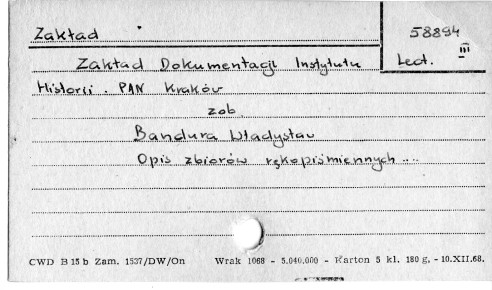 Zakład
58894
III
Lect.
Zakład Dokumentacji Instytutu
Historii. PAN Kraków
zob.
Bandura Władysław
Opis zbiorów rękopiśmiennych ...
CWD B 15 b Zam. 1537/DW/On Wrak 1068 - 5.040.000 - Karton 5 kl. 180 g, - 10.XII.68.